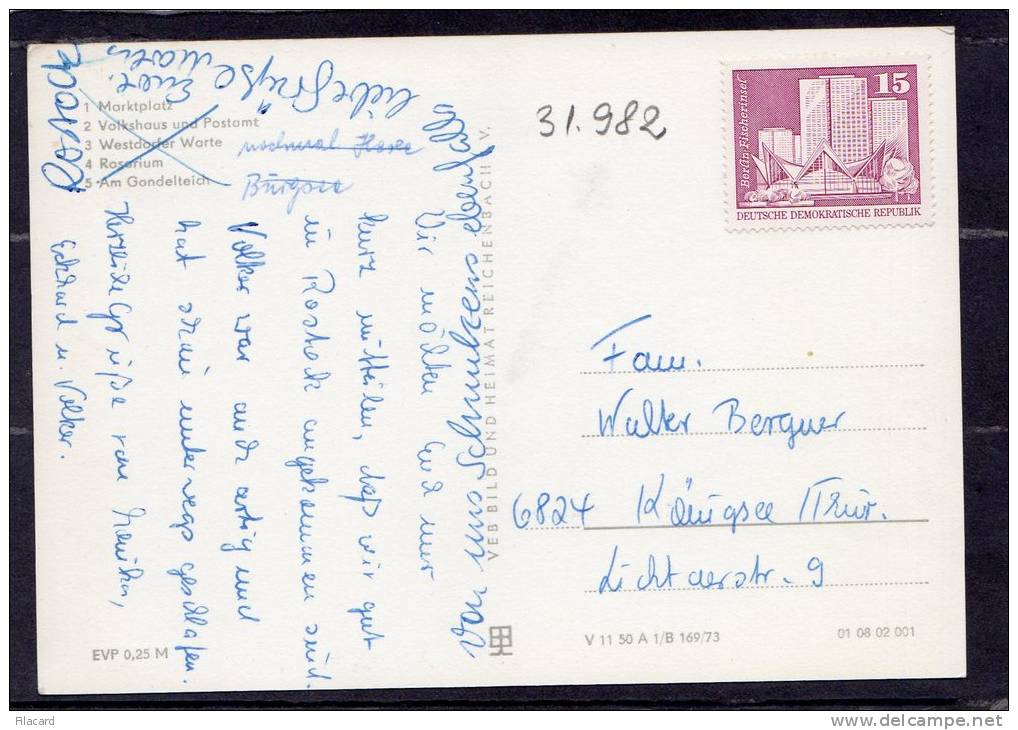 1 Marktplatz
2 Volkshaus und Postamt
3 Westdorfer Warte
4 Rosarium
5 Am Gondelteich
nochmal
Burgsee
liebe Grüße
Wir möchten Euch nur
kurz mitteilen, daß wir gut
in Rostock angekommen sind.
Volker war auch artig und
hat schön unterwegs geschlafen.
Herzliche Grüße von Monika,
Eckhard u. Volker.
VEB BILD UND HEIMAT REICHENBACH V.
EVP 0,25 M
31.982
15
Berlin-Fischerinsel
DEUTSCHE DEMOKRATISCHE REPUBLIK
Fam.
Walter Bergner
6824 Königsee /Thür.
Lichtaerstr. 9
V 11 50 A 1/B 169/73
01 08 02 001
Filacard
www.delcampe.net